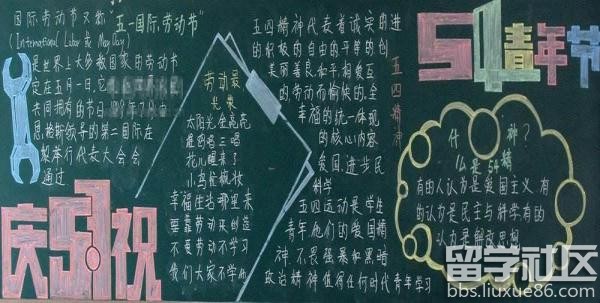 国际劳动节又称“五一国际劳动节”
(International Labor 或 May Day)
是世界上大多数国家的劳动节
定在五月一日,它
共同拥有的节日
恩格斯领导的第二国际在
黎举行代表大会会
通过
庆5.1祝
劳动最
光荣
太阳光金亮亮
雄鸡唱三唱
花儿醒来了
小鸟忙梳妆
幸福生活那里来
要靠劳动来创造
不要劳动不学习
我们大家不学他
五四精神代表着诚实的进
的积极的自由的平等的创
美丽善良和平相爱互
的,劳动而愉快的,全
幸福的统一体现
的核心内容
爱国 进步 民
科学
五四运动是学生
青年,他们的爱国精
神,不畏强暴和黑暗
政治精神值得任何时代青年学习
五四精神
54青年节
什 神?
么是54精
有的人认为是爱国主义,有
的认为是民主与科学,有的
认为是解放思想
留学社区
bbs.liuxue86.com